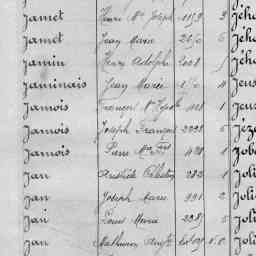 Jamet Henri Me Joseph 1159 3 Jéh
Jamet Jean Marie 6 Jéh
Jamin Henri Adolphe 2008 Jéh
Jaminais Jean Marie 4 Jeus
Jamois François 1 Jeus
Jamois Joseph François 2098 5 Jéz
Jamois Pierre Me 428 1 Job
Jan Aristide Célestin 283 1 Joli
Jan Joseph Marie 991 2 Joli
Jan Louis Marie 2285 5 Joli
Jan Mathurin Joli